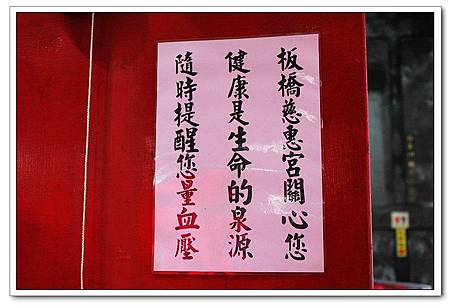 板橋慈惠宮關心您
健康是生命的泉源
隨時提醒您量血壓